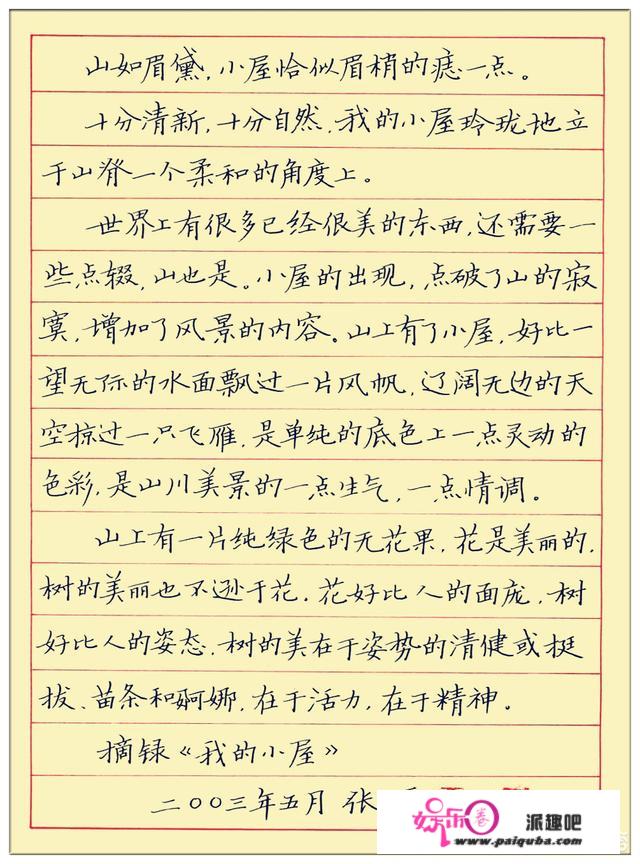 山如眉黛,小屋恰似眉梢的痣一点。
十分清新,十分自然,我的小屋玲珑地立
于山脊一个柔和的角度上。
世界上有很多已经很美的东西,还需要一
些点缀,山也是。小屋的出现,点破了山的寂
寞,增加了风景的内容。山上有了小屋,好比一
望无际的水面飘过一片风帆,辽阔无边的天
空掠过一只飞雁,是单纯的底色上一点灵动的
色彩,是山川美景的一点生气,一点情调。
山上有一片纯绿色的无花果,花是美丽的,
树的美丽也不逊于花。花好比人的面庞,树
好比人的姿态,树的美在于姿势的清健或挺
拔、苗条和婀娜,在于活力,在于精神。
摘录《我的小屋》
二〇〇三年五月 张
娱乐圈 派趣吧
www.paiquba.com